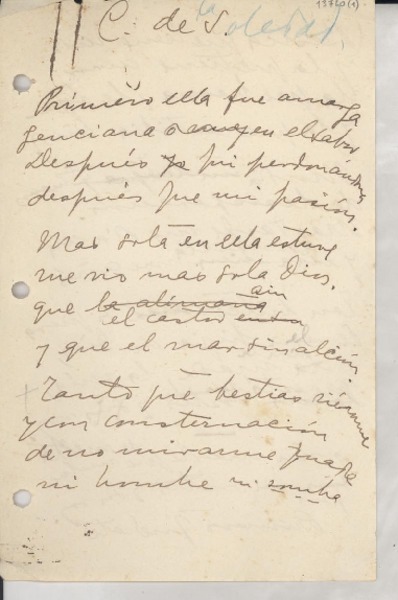 13720(1)
C. de la Soledad
Primero ella fue amarga
genciana en el labio
Después yo fui perdonándola
después fue mi pasión.
Mas sola en ella estuve
me vio mas sola Dios,
ain
que la alimaña
el castor
y que el mar sin alción.
Tanto que bestias viéronme
y con consternación
de no mirarme
mi hombre ni sombra